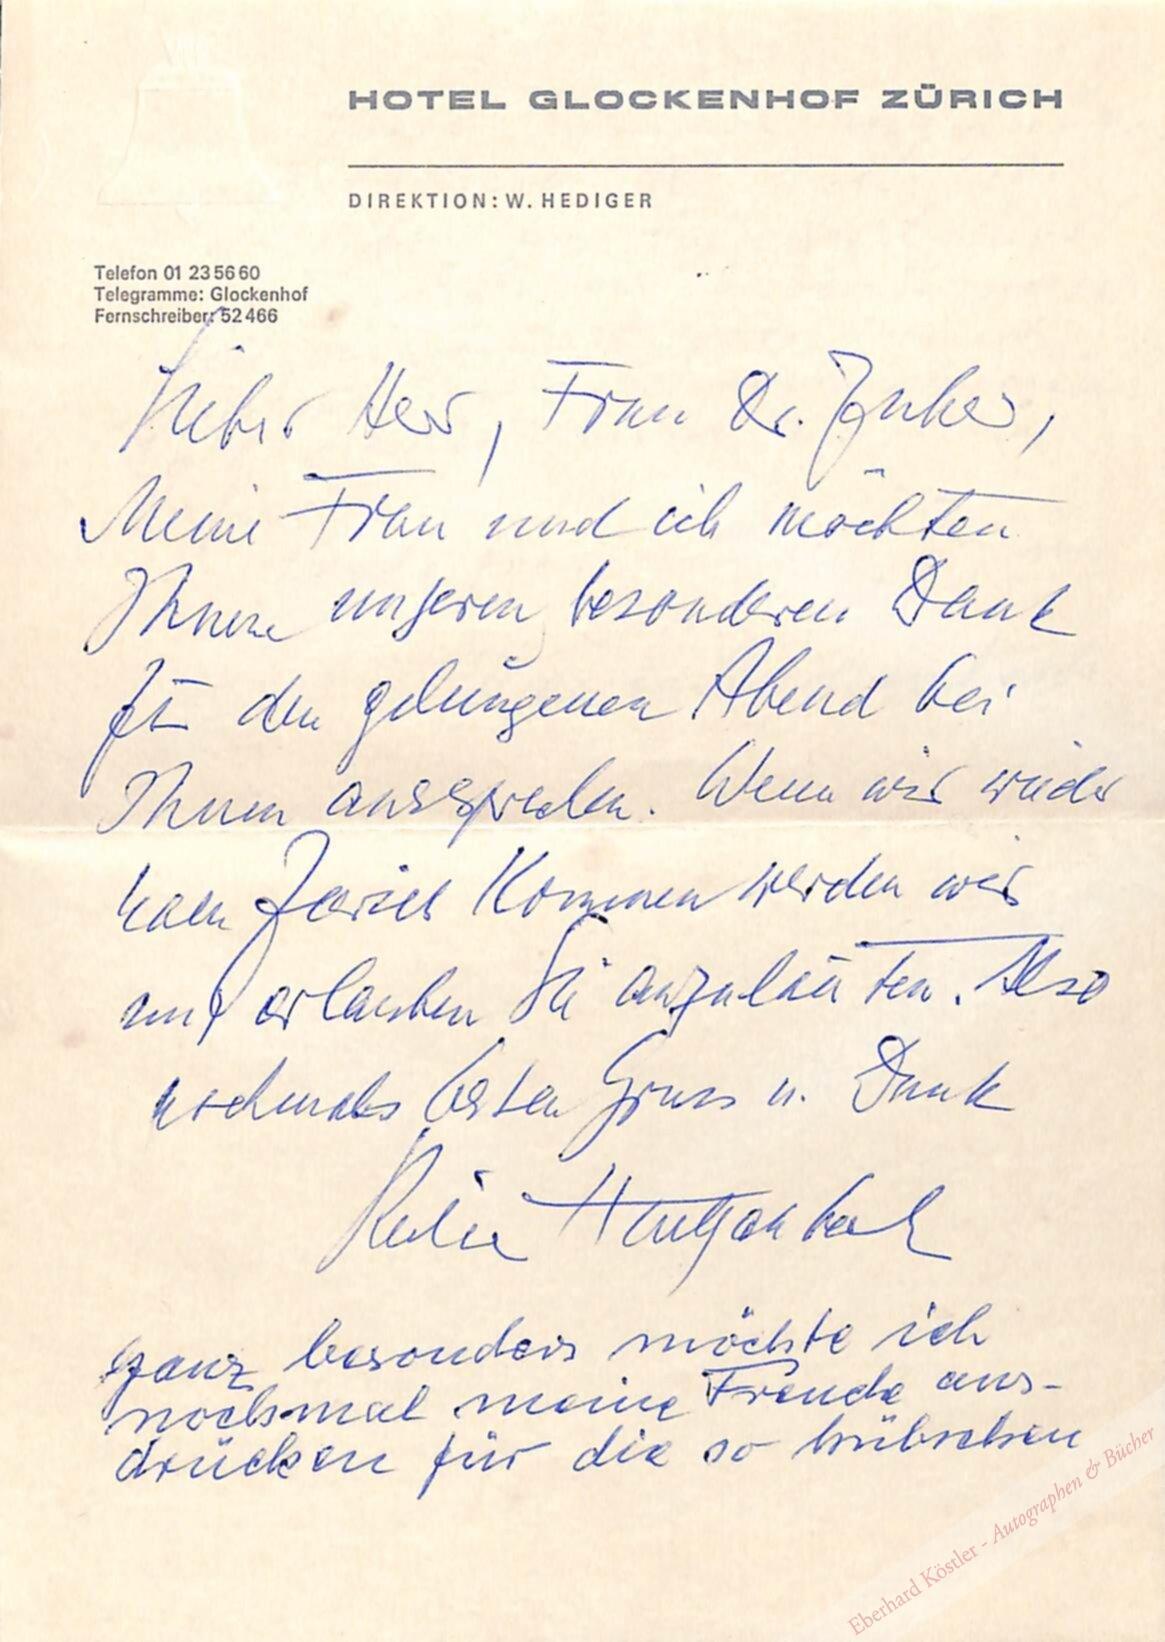 HOTEL GLOCKENHOF ZÜRICH
DIREKTION: W. HEDIGER
Telefon 01 23 56 60
Telegramme: Glockenhof
Fernschreiber: 52 466
Lieber Herr, Frau Dr.
Meine Frau und ich möchten
Ihnen unseren besonderen Dank
für den gelungenen Abend bei
Ihnen aussprechen. Wenn wir wieder
nach Zürich kommen werden wir
uns erlauben Sie anzuläuten. Also
nochmals besten Gruss u. Dank
ganz besonders möchte ich
nochmal meine Freude aus-
drücken für die so hübschen
Eberhard Köstler - Autographen & Bücher